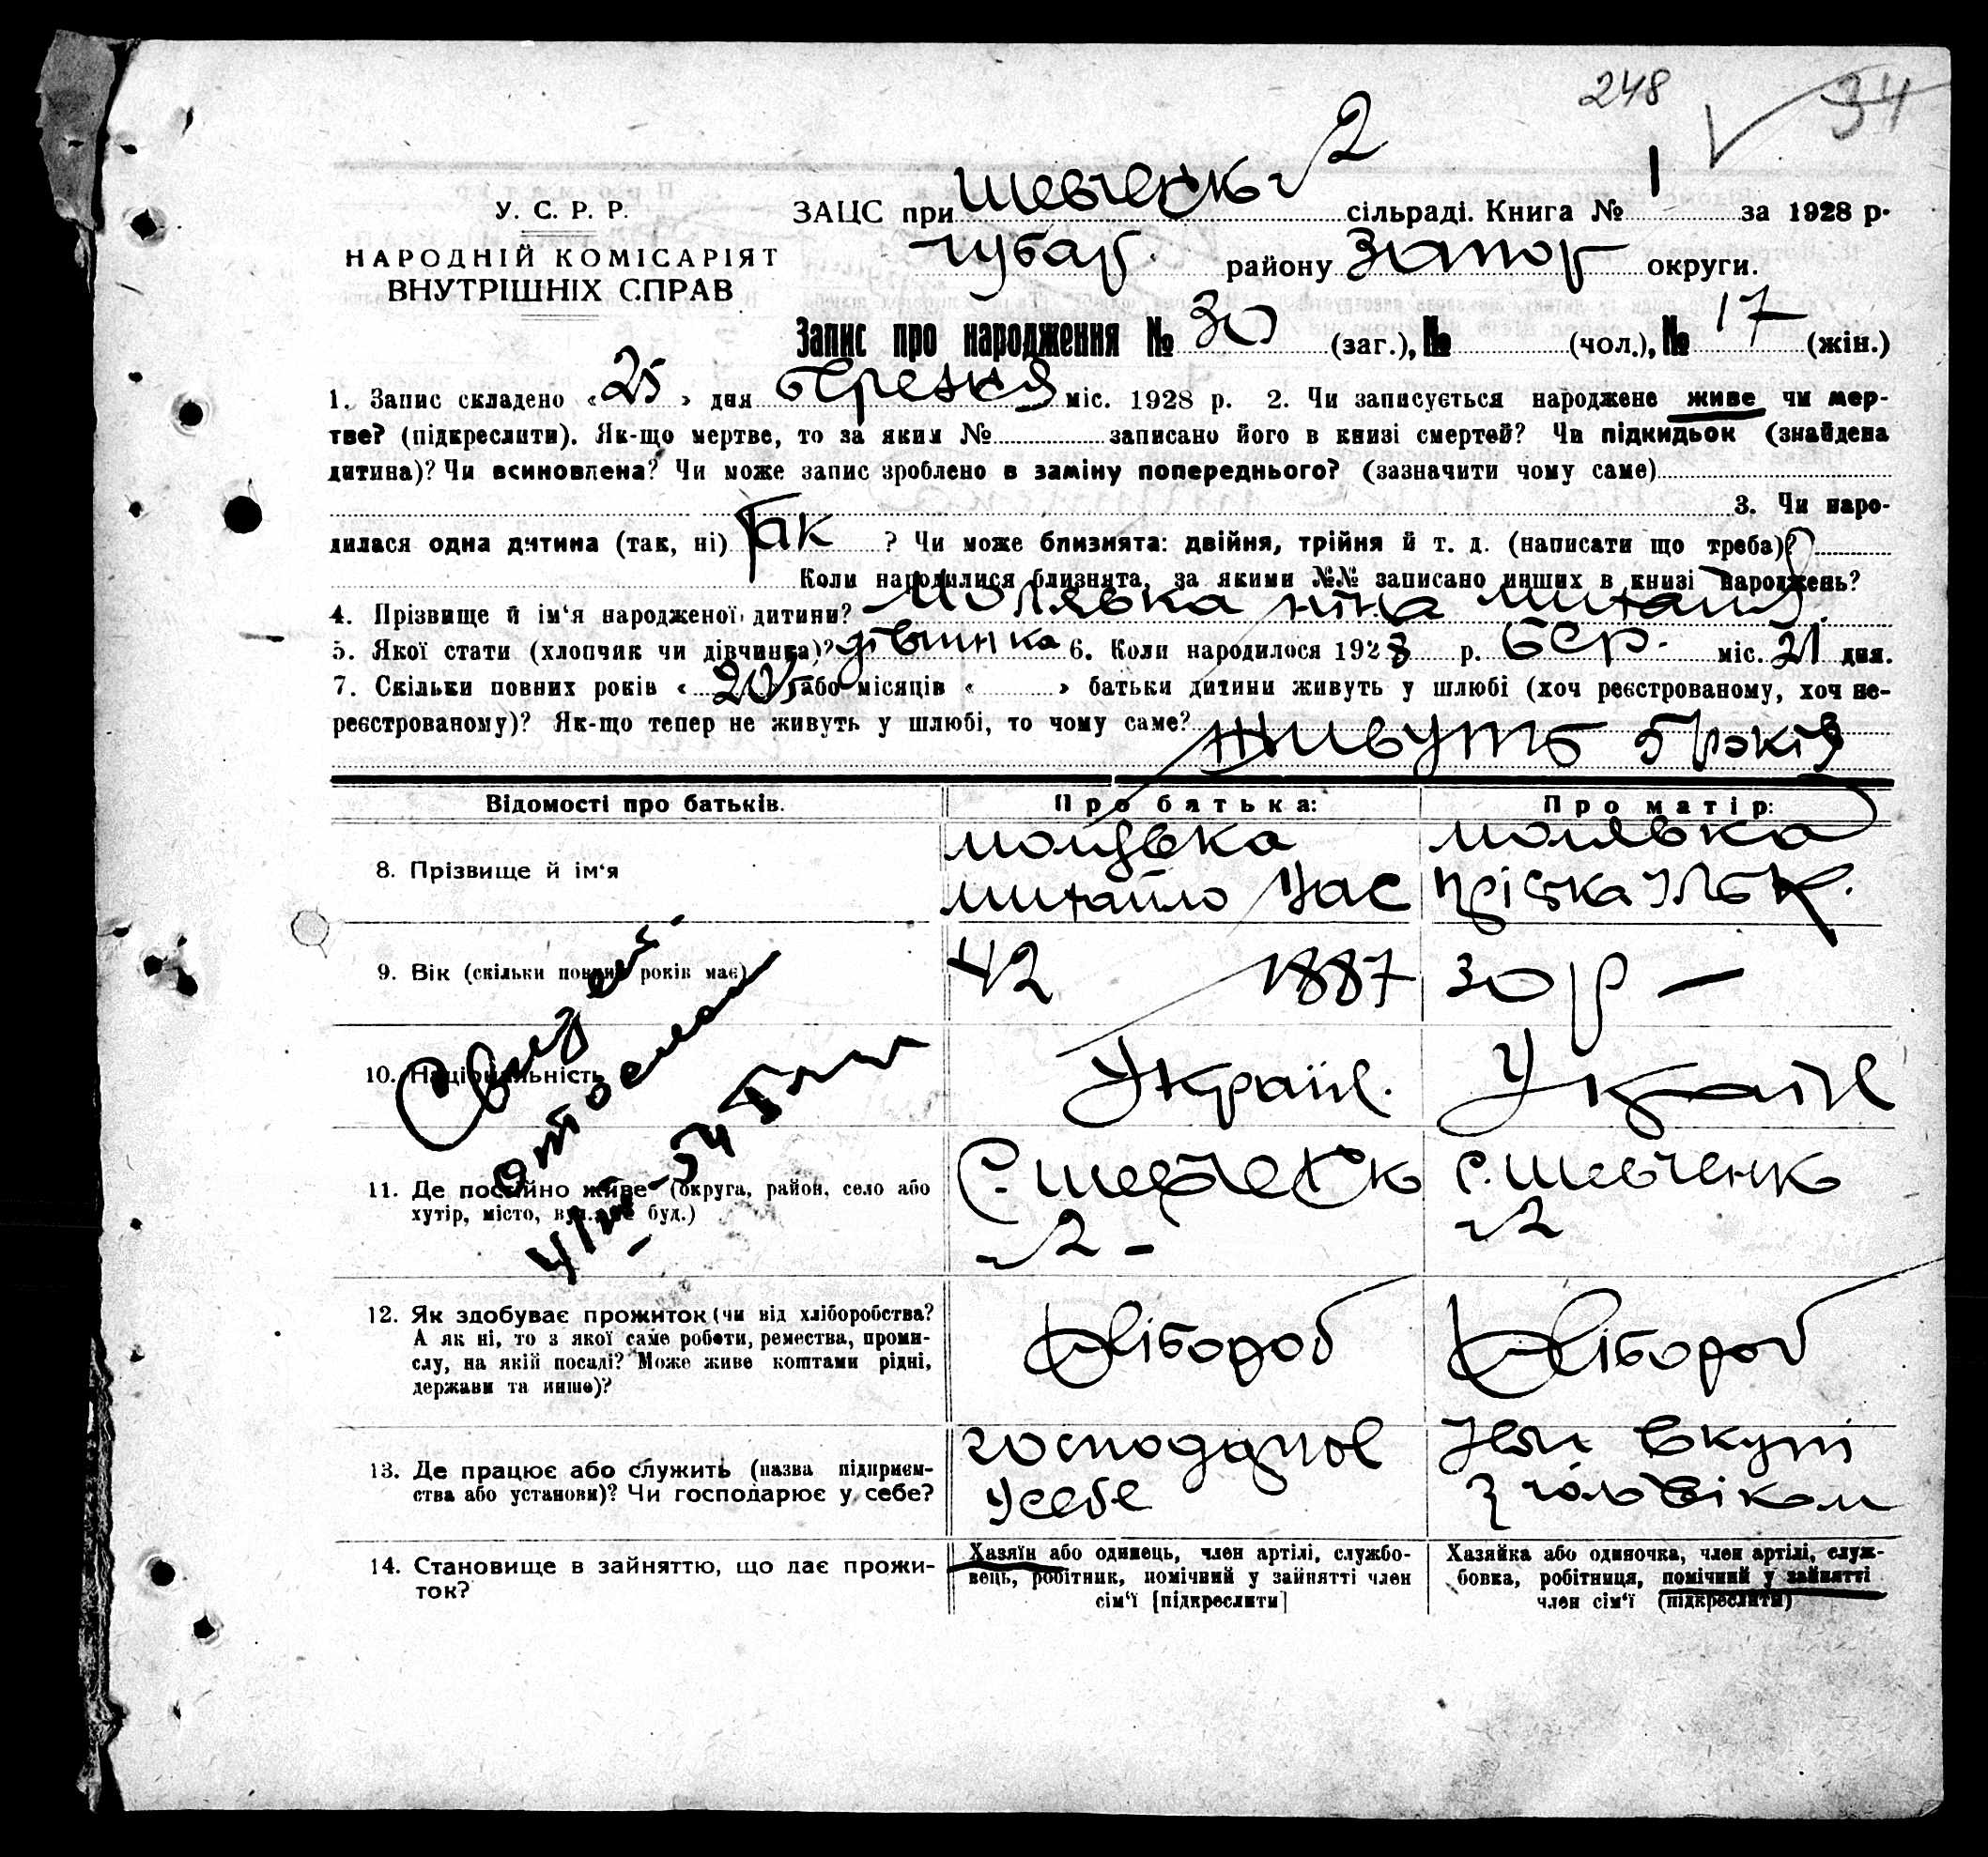 248 34
У. С. Р. Р.
НАРОДНІЙ КОМІСАРІЯТ
ВНУТРІШНІХ СПРАВ
ЗАЦС при Шевченк 2 сільраді. Книга № 1 за 1928 р.
Чубар. району Запор округи.
Запис про народження № 30 (заг.), № (чол.), № 17 (жін.)
1. Запис складено «25» дня березня міс. 1928 р. 2. Чи записується народжене живе чи мер-
тве? (підкреслити). Як-що мертве, то за яким № записано його в книзі смертей? Чи підкидьок (знайдена
дитина)? Чи всиновлена? Чи може запис зроблено в заміну попереднього? (зазначити чому саме)
3. Чи наро-
дилася одна дитина (так, ні) Так ? Чи може близнята: двійня, трійня й т. д. (написати що треба)?
Коли народилися близнята, за якими №№ записано инших в книзі народжень?
4. Прізвище й ім'я народженої дитини? Молявка Ніна Михайл.
5. Якої стати (хлопчик чи дівчинка)? дівчинка 6. Коли народилося 1928 р. Бер. міс. 21 дня.
7. Скільки повних років « 20 » або місяців « » батьки дитини живуть у шлюбі (хоч реєстрованому, хоч не-
реєстрованому)? Як-що тепер не живуть у шлюбі, то чому саме? Живуть років
Відомості про батьків. Про батька: Про матір:
8. Прізвище й ім'я Молявка Молявка
Михайло Яас Пріська Ільк.
9. Вік (скільки повних років має) 42 1887 30 р —
10. Національність Україн. Україн
11. Де постійно живе (округа, район, село або С. Шевченк С. Шевченк
хутір, місто, вул., № буд.) 2 - 2
12. Як здобуває прожиток (чи від хліборобства? Хлібороб Хлібороб
А як ні, то з якої саме роботи, ремества, проми-
слу, на якій посаді? Може живе коштами рідні,
держави та инше)?
13. Де працює або служить (назва підприєм- господарює вкупі
ства або установи)? Чи господарює у себе? У себе з чоловіком
14. Становище в зайняттю, що дає прожи-
ток?
Хазяїн або одинець, член артілі, службо-
вець, робітник, помічний у зайнятті член
сім'ї [підкреслити]
Хазяйка або одиночка, член артілі, служ-
бовка, робітниця, помічний у зайнятті
член сім'ї (підкреслити)